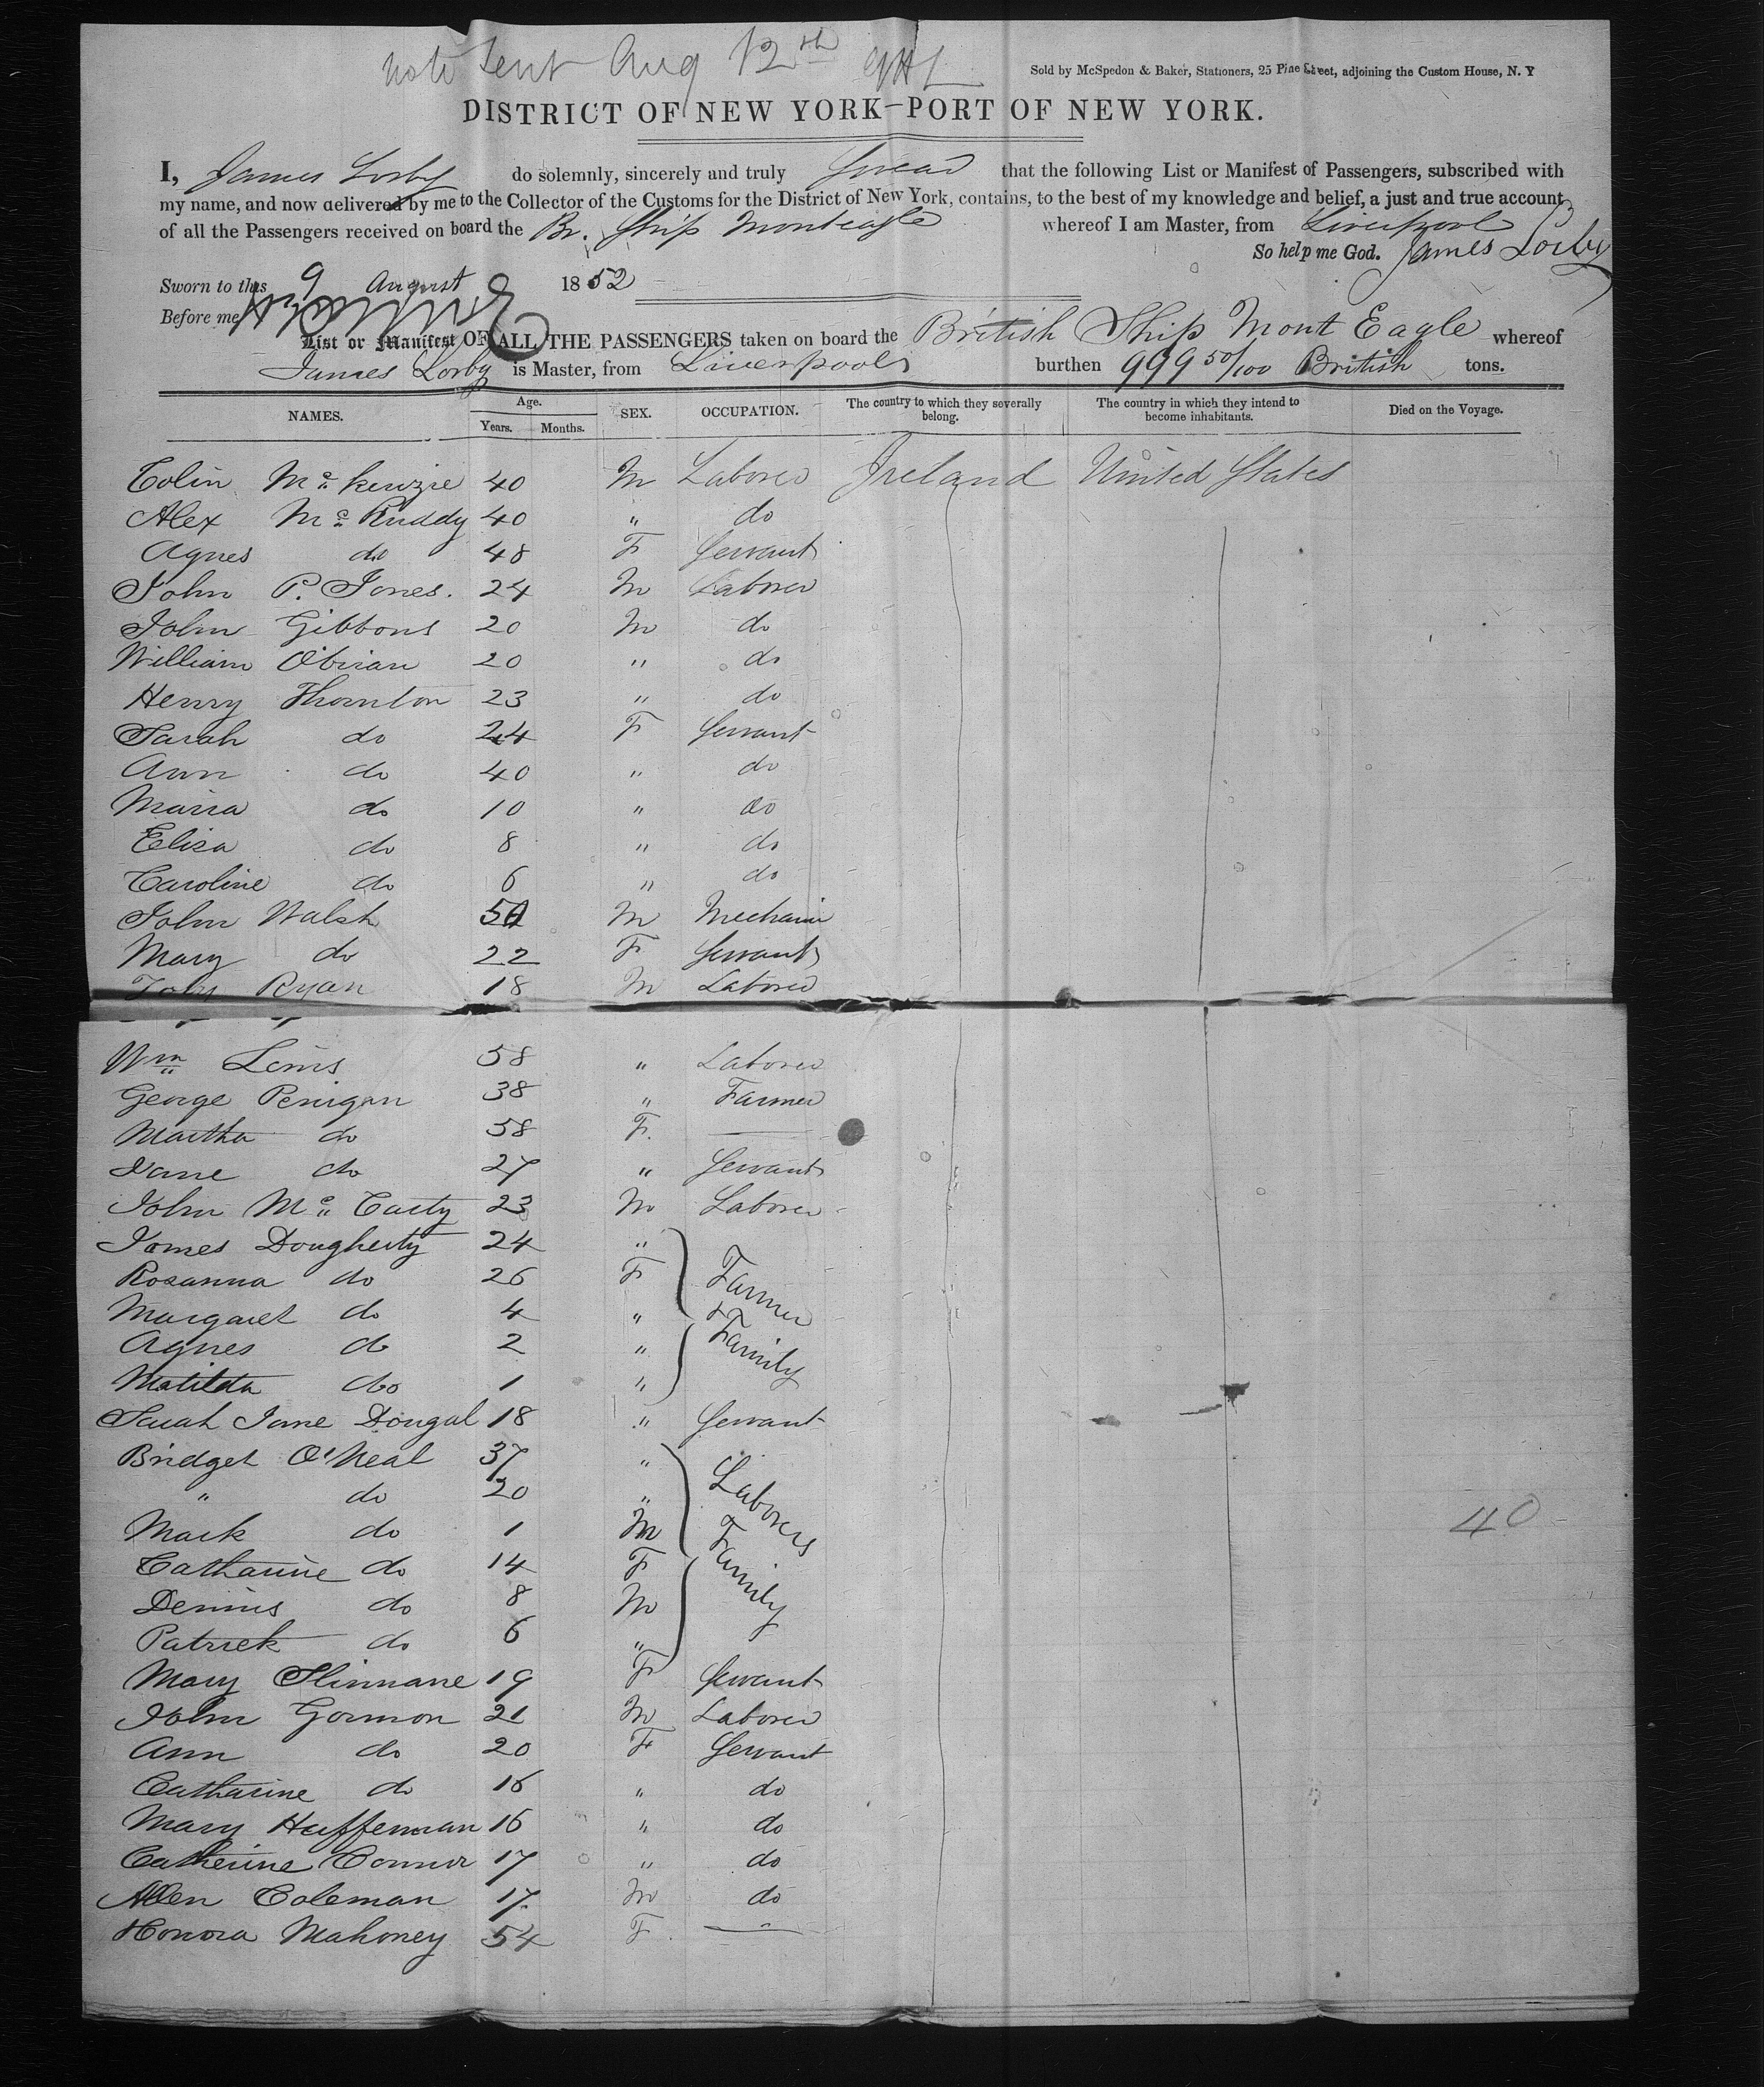 note sent Aug 12th
Sold by McSpedon & Baker, Stationers, 25 Pine Street, adjoining the Custom House, N. Y
DISTRICT OF NEW YORK—PORT OF NEW YORK.
I, James Losby do solemnly, sincerely and truly Swear that the following List or Manifest of Passengers, subscribed with
my name, and now delivered by me to the Collector of the Customs for the District of New York, contains, to the best of my knowledge and belief, a just and true account
of all the Passengers received on board the Br. Ship Monteagle whereof I am Master, from Liverpool
So help me God. James Losby
Sworn to this 9 August 1852
Before me
List or Manifest OF ALL THE PASSENGERS taken on board the British Ship Mont Eagle whereof
James Losby is Master, from Liverpool burthen 999 50/100 British tons.
NAMES. Age. Years. Months. SEX. OCCUPATION. The country to which they severally belong. The country in which they intend to become inhabitants. Died on the Voyage.
Colin Mc Kenzie 40 M Laborer Ireland United States
Alex Mc Ruddy 40 " do
Agnes do 48 F Servant
John P. Jones. 24 M Laborer
John Gibbons 20 M do
William Obrian 20 " do
Henry Thornton 23 " do
Sarah do 24 F Servant
Ann do 40 " do
Maria do 10 " do
Eliza do 8 " do
Caroline do 6 " do
John Walsh 50 M Mechanic
Mary do 22 F Servant
Ryan 18 M Laborer
Wm Lewis 58 " Laborer
George Penigan 38 " Farmer
Martha do 58 F. —
Jane do 27 " Servant
John Mc Carty 23 M Laborer
James Dougherty 24 " Farmer & Family
Rosanna do 26 F
Margaret do 4 "
Agnes do 2 "
Matilda do 1 "
Sarah Jane Dougal 18 " Servant
Bridget O'Neal 37 " Laborers Family
" do 20 "
Mark do 1 M
Catharine do 14 F
Dennis do 8 M
Patrick do 6 "
Mary Slinnane 19 F Servant
John Gormon 21 M Laborer
Ann do 20 F Servant
Catharine do 16 " do
Mary Huffernan 16 " do
Catherine Connor 17 " do
Allen Coleman 17. M do
Honora Mahoney 54 F —
40